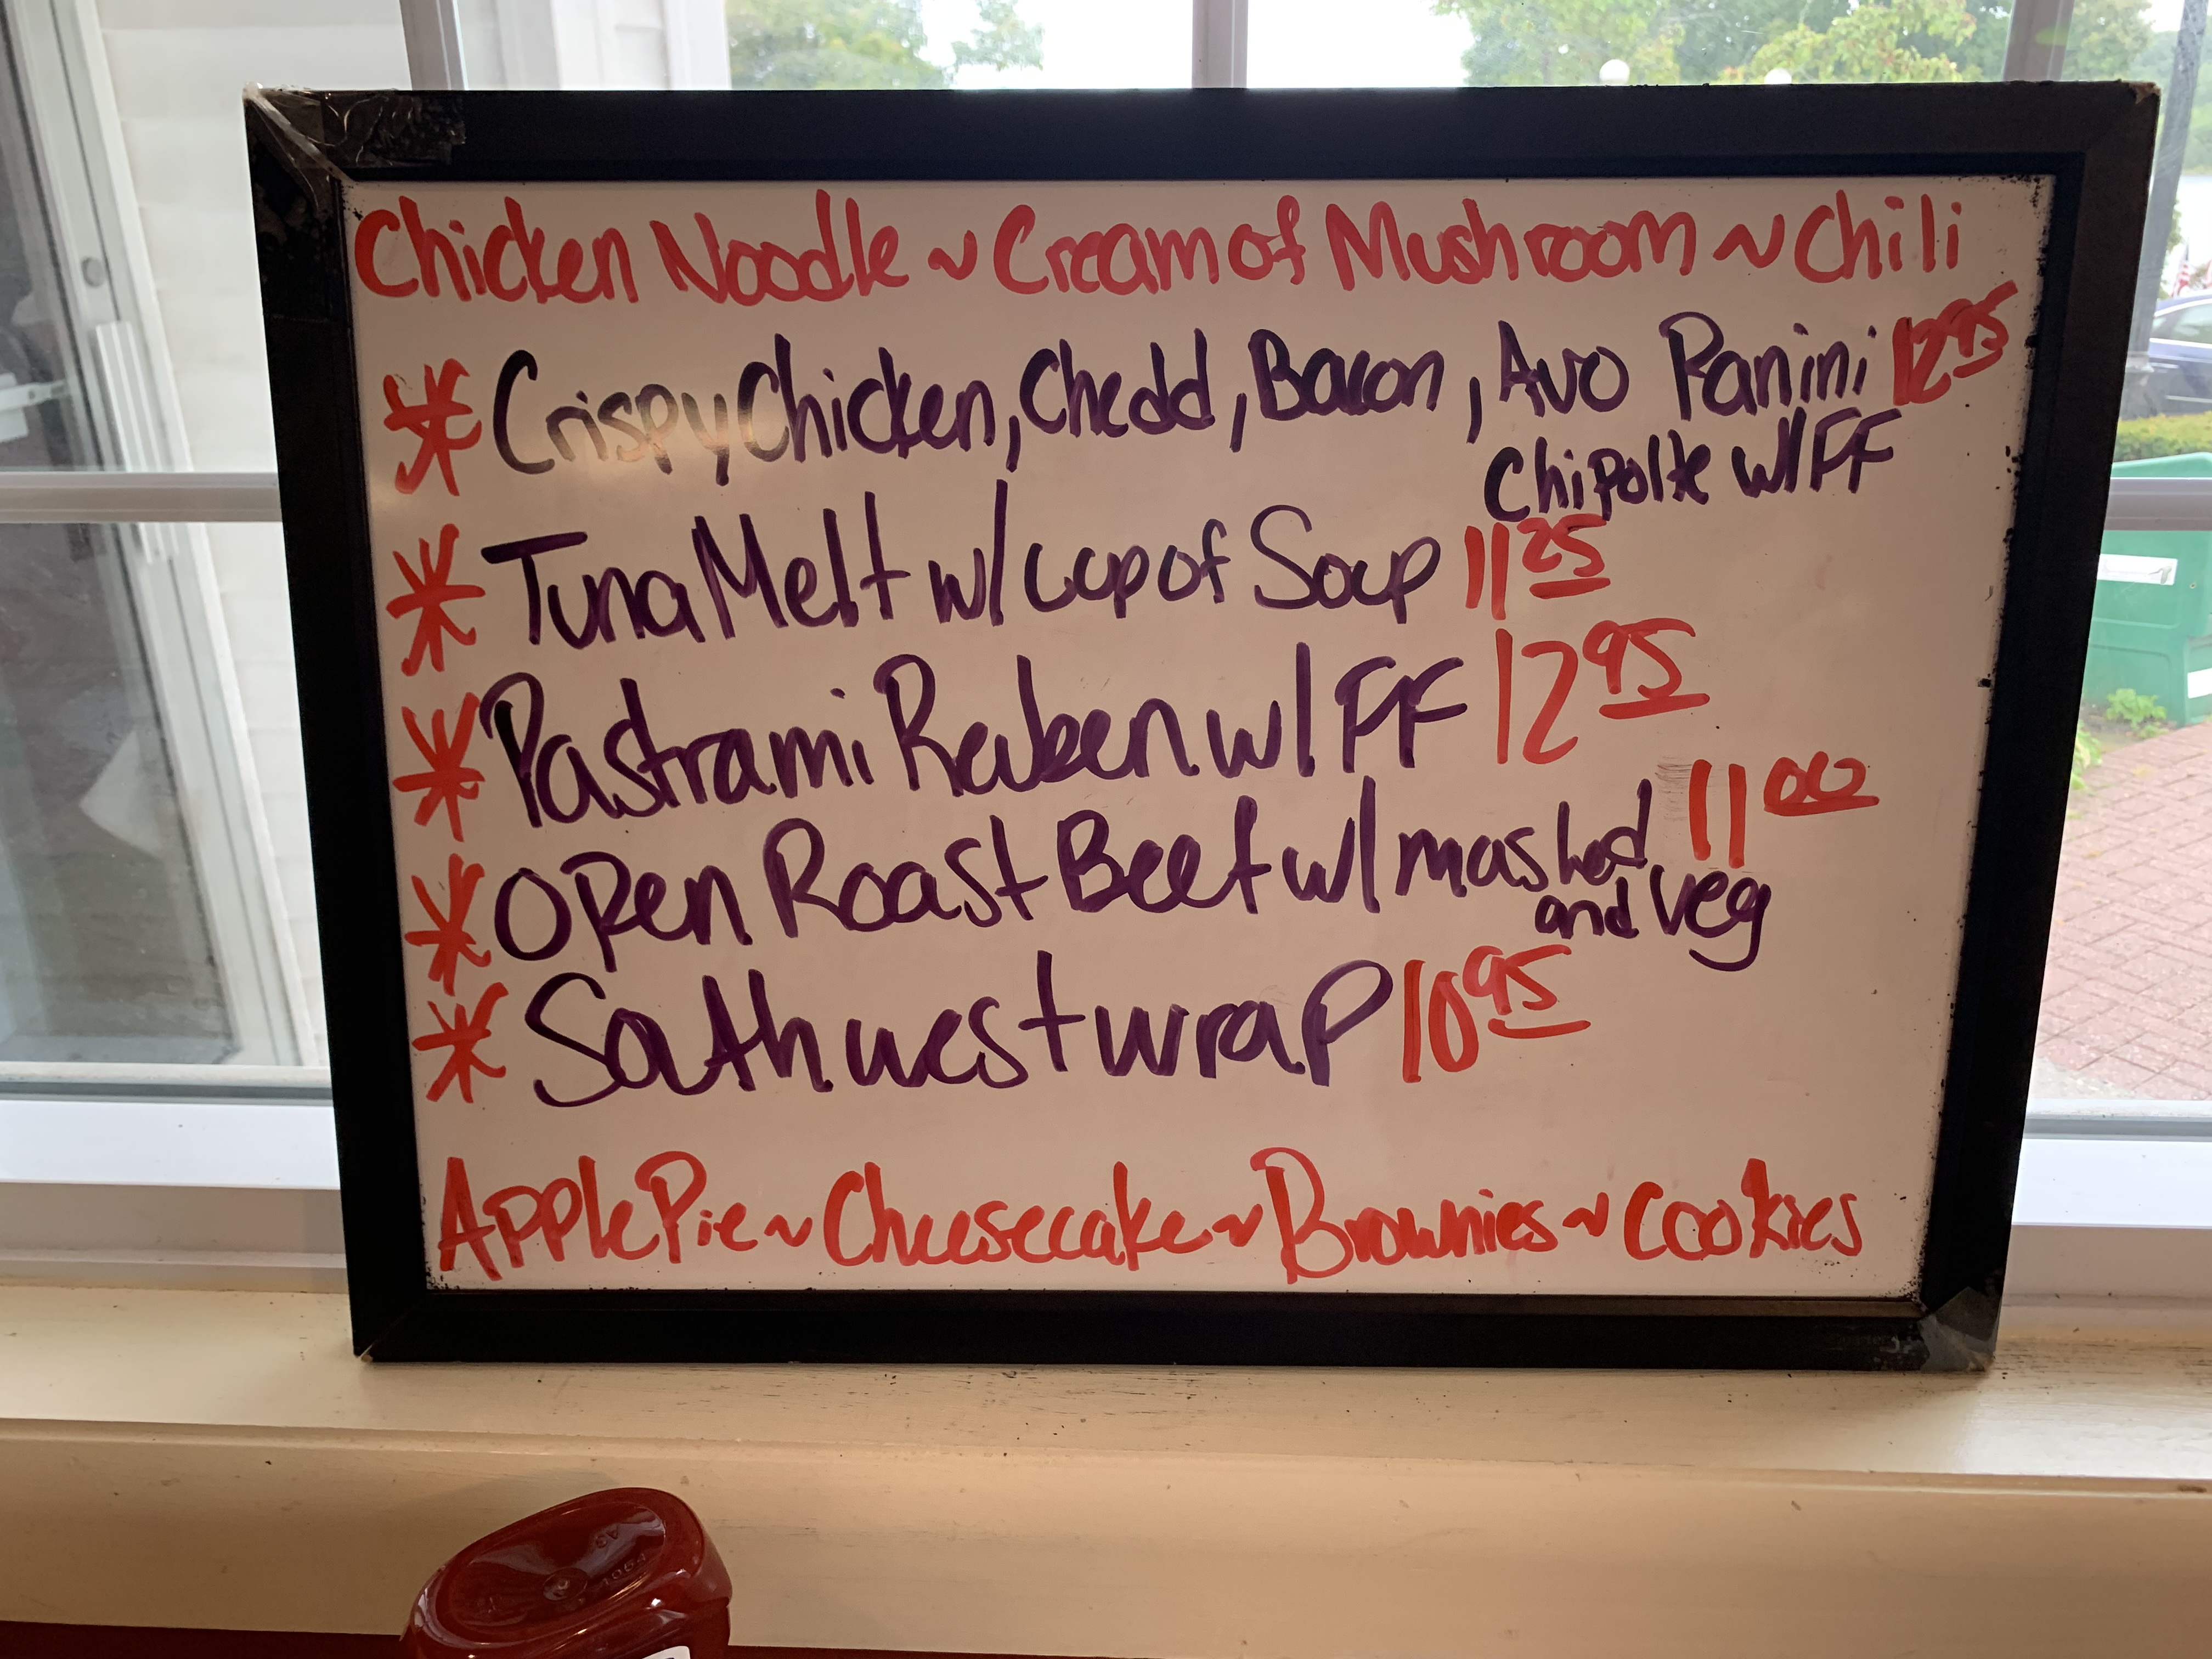 Chicken Noodle ~ Cream of Mushroom ~ Chili
* Crispy Chicken, Chedd, Bacon, Avo Panini 12 95
Chipolte w/ FF
* Tuna Melt w/ cup of Soup 11 25
* Pastrami Reuben w/ FF 12 95
* Open Roast Beef w/ mashed 11 00
and veg
* Southwest wrap 10 95
Apple Pie ~ Cheesecake ~ Brownies ~ Cookies